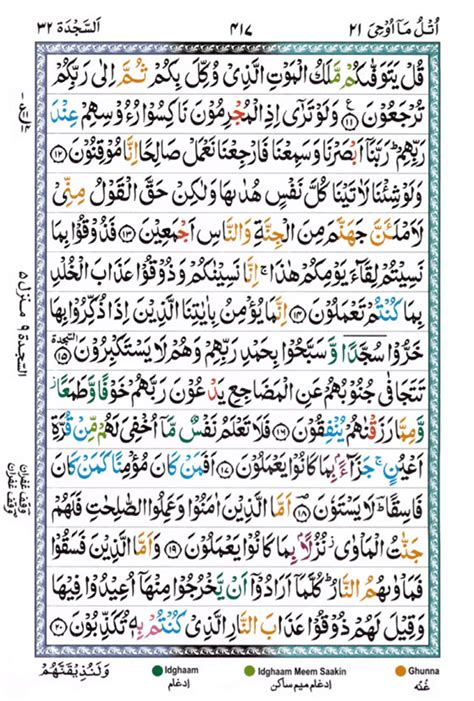 اُتْلُ مَاۤ اُوْحِیَ ۲۱ ۴۱۷ اَلسَّجْدَة ۳۲
قُلْ یَتَوَفّٰىكُمْ مَّلَكُ الْمَوْتِ الَّذِیْ وُكِّلَ بِكُمْ ثُمَّ اِلٰى رَبِّكُمْ
تُرْجَعُوْنَ ۱۱ وَلَوْ تَرٰۤى اِذِ الْمُجْرِمُوْنَ نَاكِسُوْا رُءُوْسِهِمْ عِنْدَ
رَبِّهِمْ ؕ رَبَّنَاۤ اَبْصَرْنَا وَسَمِعْنَا فَارْجِعْنَا نَعْمَلْ صَالِحًا اِنَّا مُوْقِنُوْنَ ۱۲
وَلَوْ شِئْنَا لَاٰتَیْنَا كُلَّ نَفْسٍ هُدٰىهَا وَلٰكِنْ حَقَّ الْقَوْلُ مِنِّیْ
لَاَمْلَـَٔنَّ جَهَنَّمَ مِنَ الْجِنَّةِ وَالنَّاسِ اَجْمَعِیْنَ ۱۳ فَذُوْقُوْا بِمَا
نَسِیْتُمْ لِقَآءَ یَوْمِكُمْ هٰذَا ۚ اِنَّا نَسِیْنٰكُمْ وَذُوْقُوْا عَذَابَ الْخُلْدِ
بِمَا كُنْتُمْ تَعْمَلُوْنَ ۱۴ اِنَّمَا یُؤْمِنُ بِاٰیٰتِنَا الَّذِیْنَ اِذَا ذُكِّرُوْا بِهَا
خَرُّوْا سُجَّدًا وَّسَبَّحُوْا بِحَمْدِ رَبِّهِمْ وَهُمْ لَا یَسْتَكْبِرُوْنَ ۱۵ السجدة
تَتَجَافٰى جُنُوْبُهُمْ عَنِ الْمَضَاجِعِ یَدْعُوْنَ رَبَّهُمْ خَوْفًا وَّطَمَعًا ؗ
وَّمِمَّا رَزَقْنٰهُمْ یُنْفِقُوْنَ ۱۶ فَلَا تَعْلَمُ نَفْسٌ مَّاۤ اُخْفِیَ لَهُمْ مِّنْ قُرَّةِ
اَعْیُنٍ ۚ جَزَآءًۢ بِمَا كَانُوْا یَعْمَلُوْنَ ۱۷ اَفَمَنْ كَانَ مُؤْمِنًا كَمَنْ كَانَ
فَاسِقًا ؕ لَا یَسْتَوٗنَ ۱۸ اَمَّا الَّذِیْنَ اٰمَنُوْا وَعَمِلُوا الصّٰلِحٰتِ فَلَهُمْ
جَنّٰتُ الْمَاْوٰى ؗ نُزُلًۢا بِمَا كَانُوْا یَعْمَلُوْنَ ۱۹ وَاَمَّا الَّذِیْنَ فَسَقُوْا
فَمَاْوٰىهُمُ النَّارُ ؕ كُلَّمَاۤ اَرَادُوْۤا اَنْ یَّخْرُجُوْا مِنْهَاۤ اُعِیْدُوْا فِیْهَا
وَقِیْلَ لَهُمْ ذُوْقُوْا عَذَابَ النَّارِ الَّذِیْ كُنْتُمْ بِهٖ تُكَذِّبُوْنَ ۲۰
السجدة ۹ منزل ۵
وقف غفران
وقف غفران
وَلَنُذِیْقَنَّهُمْ
Idghaam
ادغام
Idghaam Meem Saakin
ادغام میم ساکن
Ghunna
غُنّه